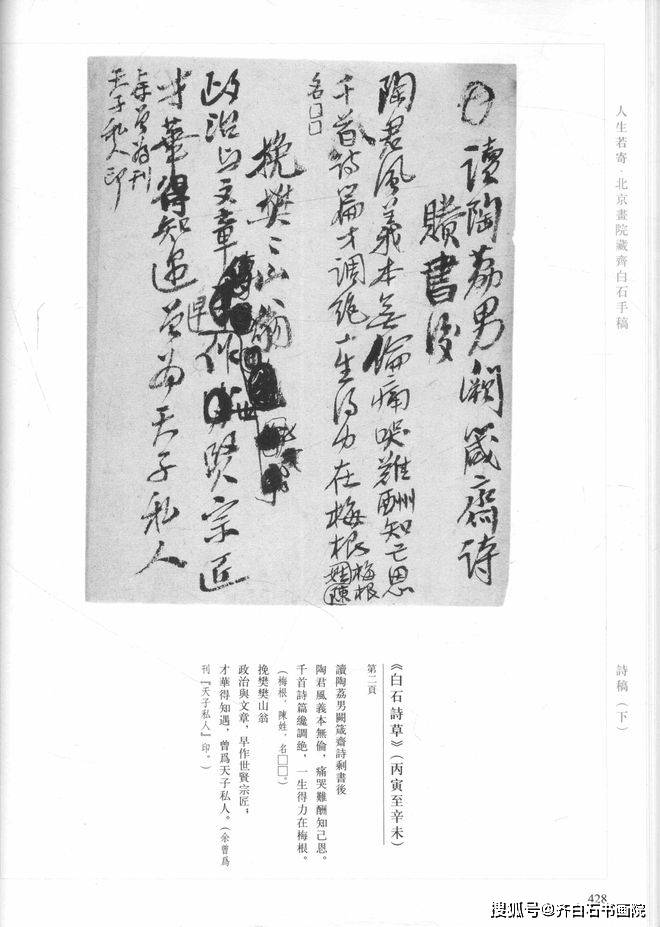 讀陶荔男闕箴齋詩
賸書後
陶君風義本無倫痛哭難酬知己恩
千首詩篇才調絕一生得力在梅根梅根
姓陳
名□□
挽樊〻山翁
政治與文章早作賢宗匠
才華得知遇曾為天子私人
余曾為刊
天子私人印
人生若寄·北京畫院藏齊白石手稿
詩稿（下）
《白石詩草》（丙寅至辛未）
第二頁
讀陶荔男闕箴齋詩剩書後
陶君風義本無倫，痛哭難酬知己恩。
千首詩篇纔調絶，一生得力在梅根。
（梅根，陳姓，名□□。）
挽樊樊山翁
政治與文章，早作世賢宗匠；
才華得知遇，曾爲天子私人。（余曾爲
刊『天子私人』印。）
428
搜狐号@齐白石书画院